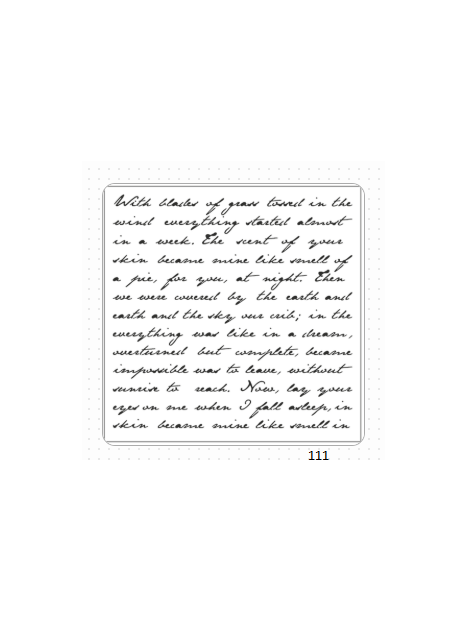 With blades of grass tossed in the
wind everything started almost
in a week. The scent of your
skin became mine like smell of
a pie, for you, at night. Then
we were covered by the earth and
earth and the sky our crib; in the
everything was like in a dream,
overturned but complete, became
impossible was to leave, without
sunrise to reach. Now, lay your
eyes on me when I fall asleep, in
skin became mine like smell in
111